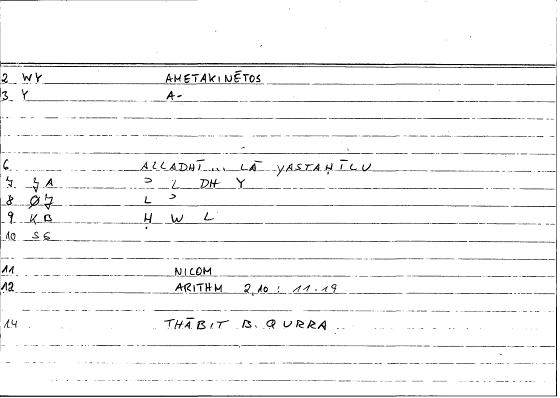 2 WY AMETAKINĒTOS
3 Y A-
6 ALLADHĪ... LĀ YASTAḤĪLU
7 JA ʾ L DH Y
8 ØJ L ʾ
9 KB Ḥ W L
10 SS
11 NICOM
12 ARITHM 2,10 : 11.19
14 THĀBIT B. QURRA